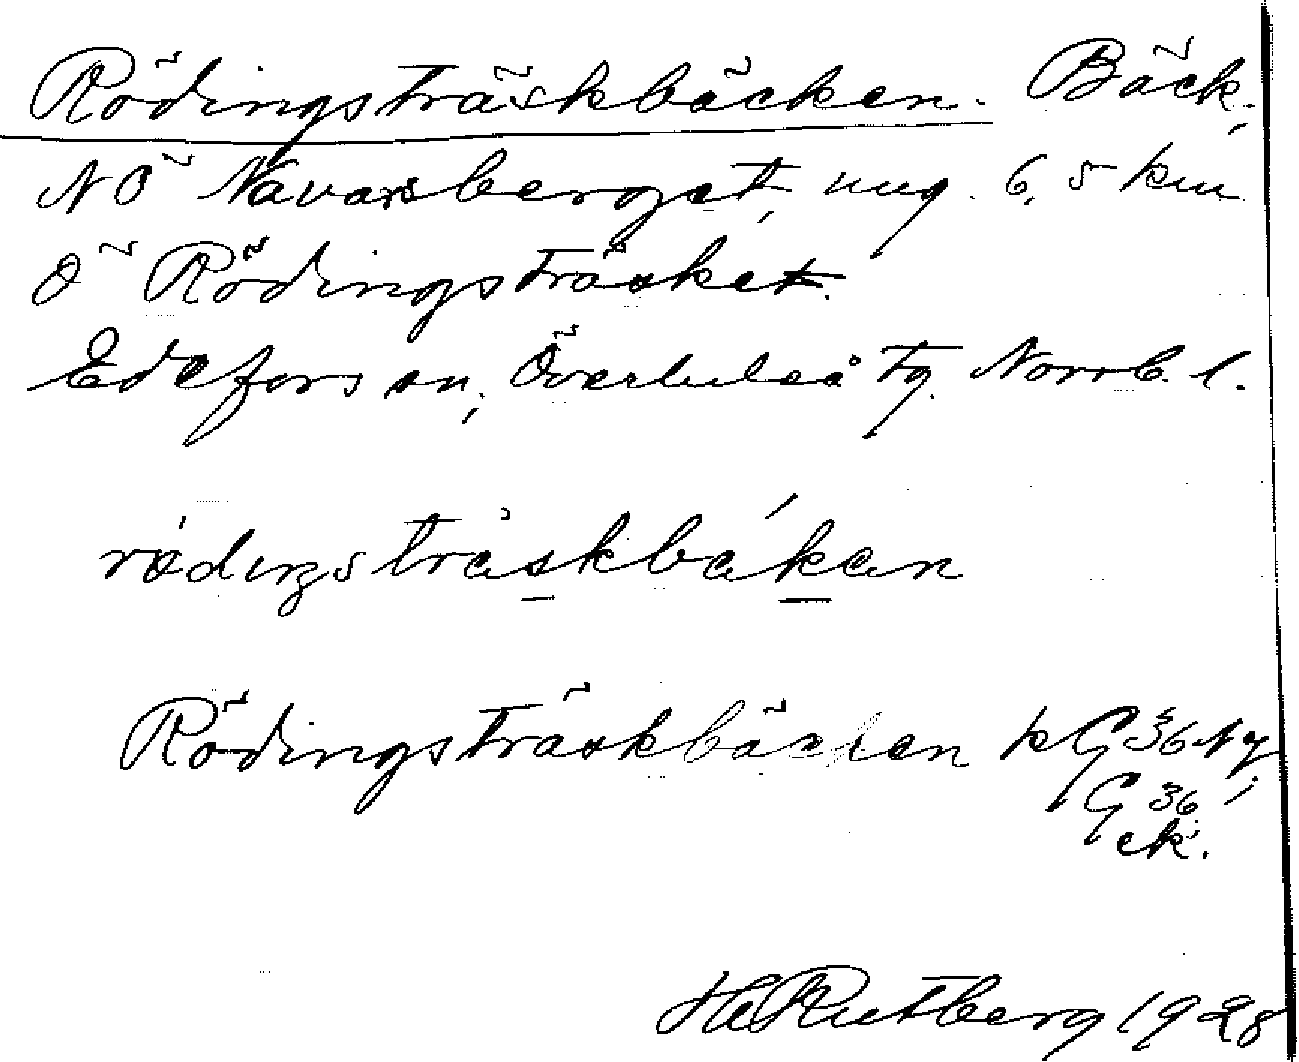 Rödingsträskbäcken. Bäck,
NÖ Navarsberget, ung. 6,5 km
Ö Rödingsträsket.
Edefors sn, Överluleå tg. Norrb. l.
rödiŋsträskbäkan
Rödingsträskbäcken kG 36 NV;
G 36
ek.
H Rutberg 1928